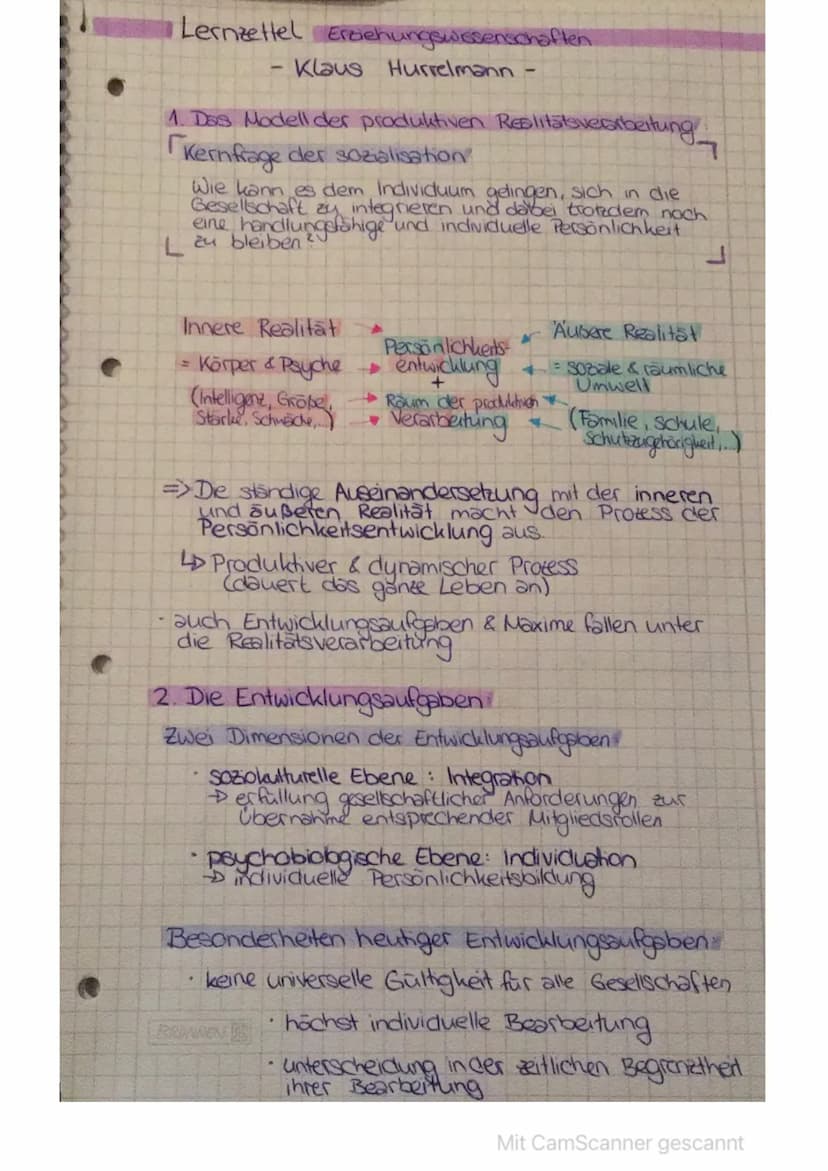 Lernzettel Erziehungswissenschaften
- Klaus Hurrelmann -
1. Das Modell der produktiven Realitätsverarbeitung:
Kernfrage der Sozialisation
Wie kann es dem Individuum gelingen, sich in die
Gesellschaft zu integrieren und dabei trotzdem noch
eine handlungsfähige und individuelle Persönlichkeit
zu bleiben?
Innere Realität
Äußere Realität
Persönlichkeits-
= Körper & Psyche
entwicklung
= soziale & räumliche
Umwelt
+
(Intelligenz, Größe,
Raum der produktiven
Stärke, Schwäche,...)
Verarbeitung
(Familie, Schule,
Schutzugehörigkeit,...)
=> Die ständige Auseinandersetzung mit der inneren
und äußeren Realität macht den Prozess der
Persönlichkeitsentwicklung aus.
↳ Produktiver & dynamischer Prozess
(dauert das ganze Leben an)
· auch Entwicklungsaufgaben & Maxime fallen unter
die Realitätsverarbeitung
2. Die Entwicklungsaufgaben:
Zwei Dimensionen der Entwicklungsaufgaben:
· soziokulturelle Ebene : Integration
→ erfüllung gesellschaftlicher Anforderungen zur
Übernahme entsprechender Mitgliedsrollen
· psychobiologische Ebene: Individuation
→ individuelle Persönlichkeitsbildung
Besonderheiten heutiger Entwicklungsaufgaben:
· keine universelle Gültigkeit für alle Gesellschaften
· höchst individuelle Bearbeitung
BRUNNEN
· unterscheidung in der zeitlichen Begrenztheit
ihrer Bearbeitung
Mit CamScanner gescannt